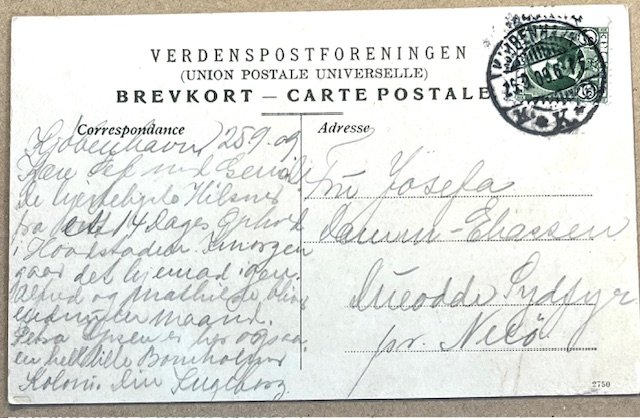 VERDENSPOSTFORENINGEN
(UNION POSTALE UNIVERSELLE)
BREVKORT — CARTE POSTALE
KJØBENHAVN
25.9.09.
K K
Correspondance
Kjøbenhavn 25 9. 09
Kære
De hjerteligste Hilsner
fra 14 Dages Ophold
i Hovedstaden. Imorgen
gaar det hjemad igen.
Alfred og Mathilde bliver
endnu en Maaned.
Petra Ipsen er her ogsaa
en hel lille Bornholmer
Koloni. Din Ingeborg
Adresse
Fru Josefa
Eliassen
Dueodde Sydfyr
pr. Nexö
2750